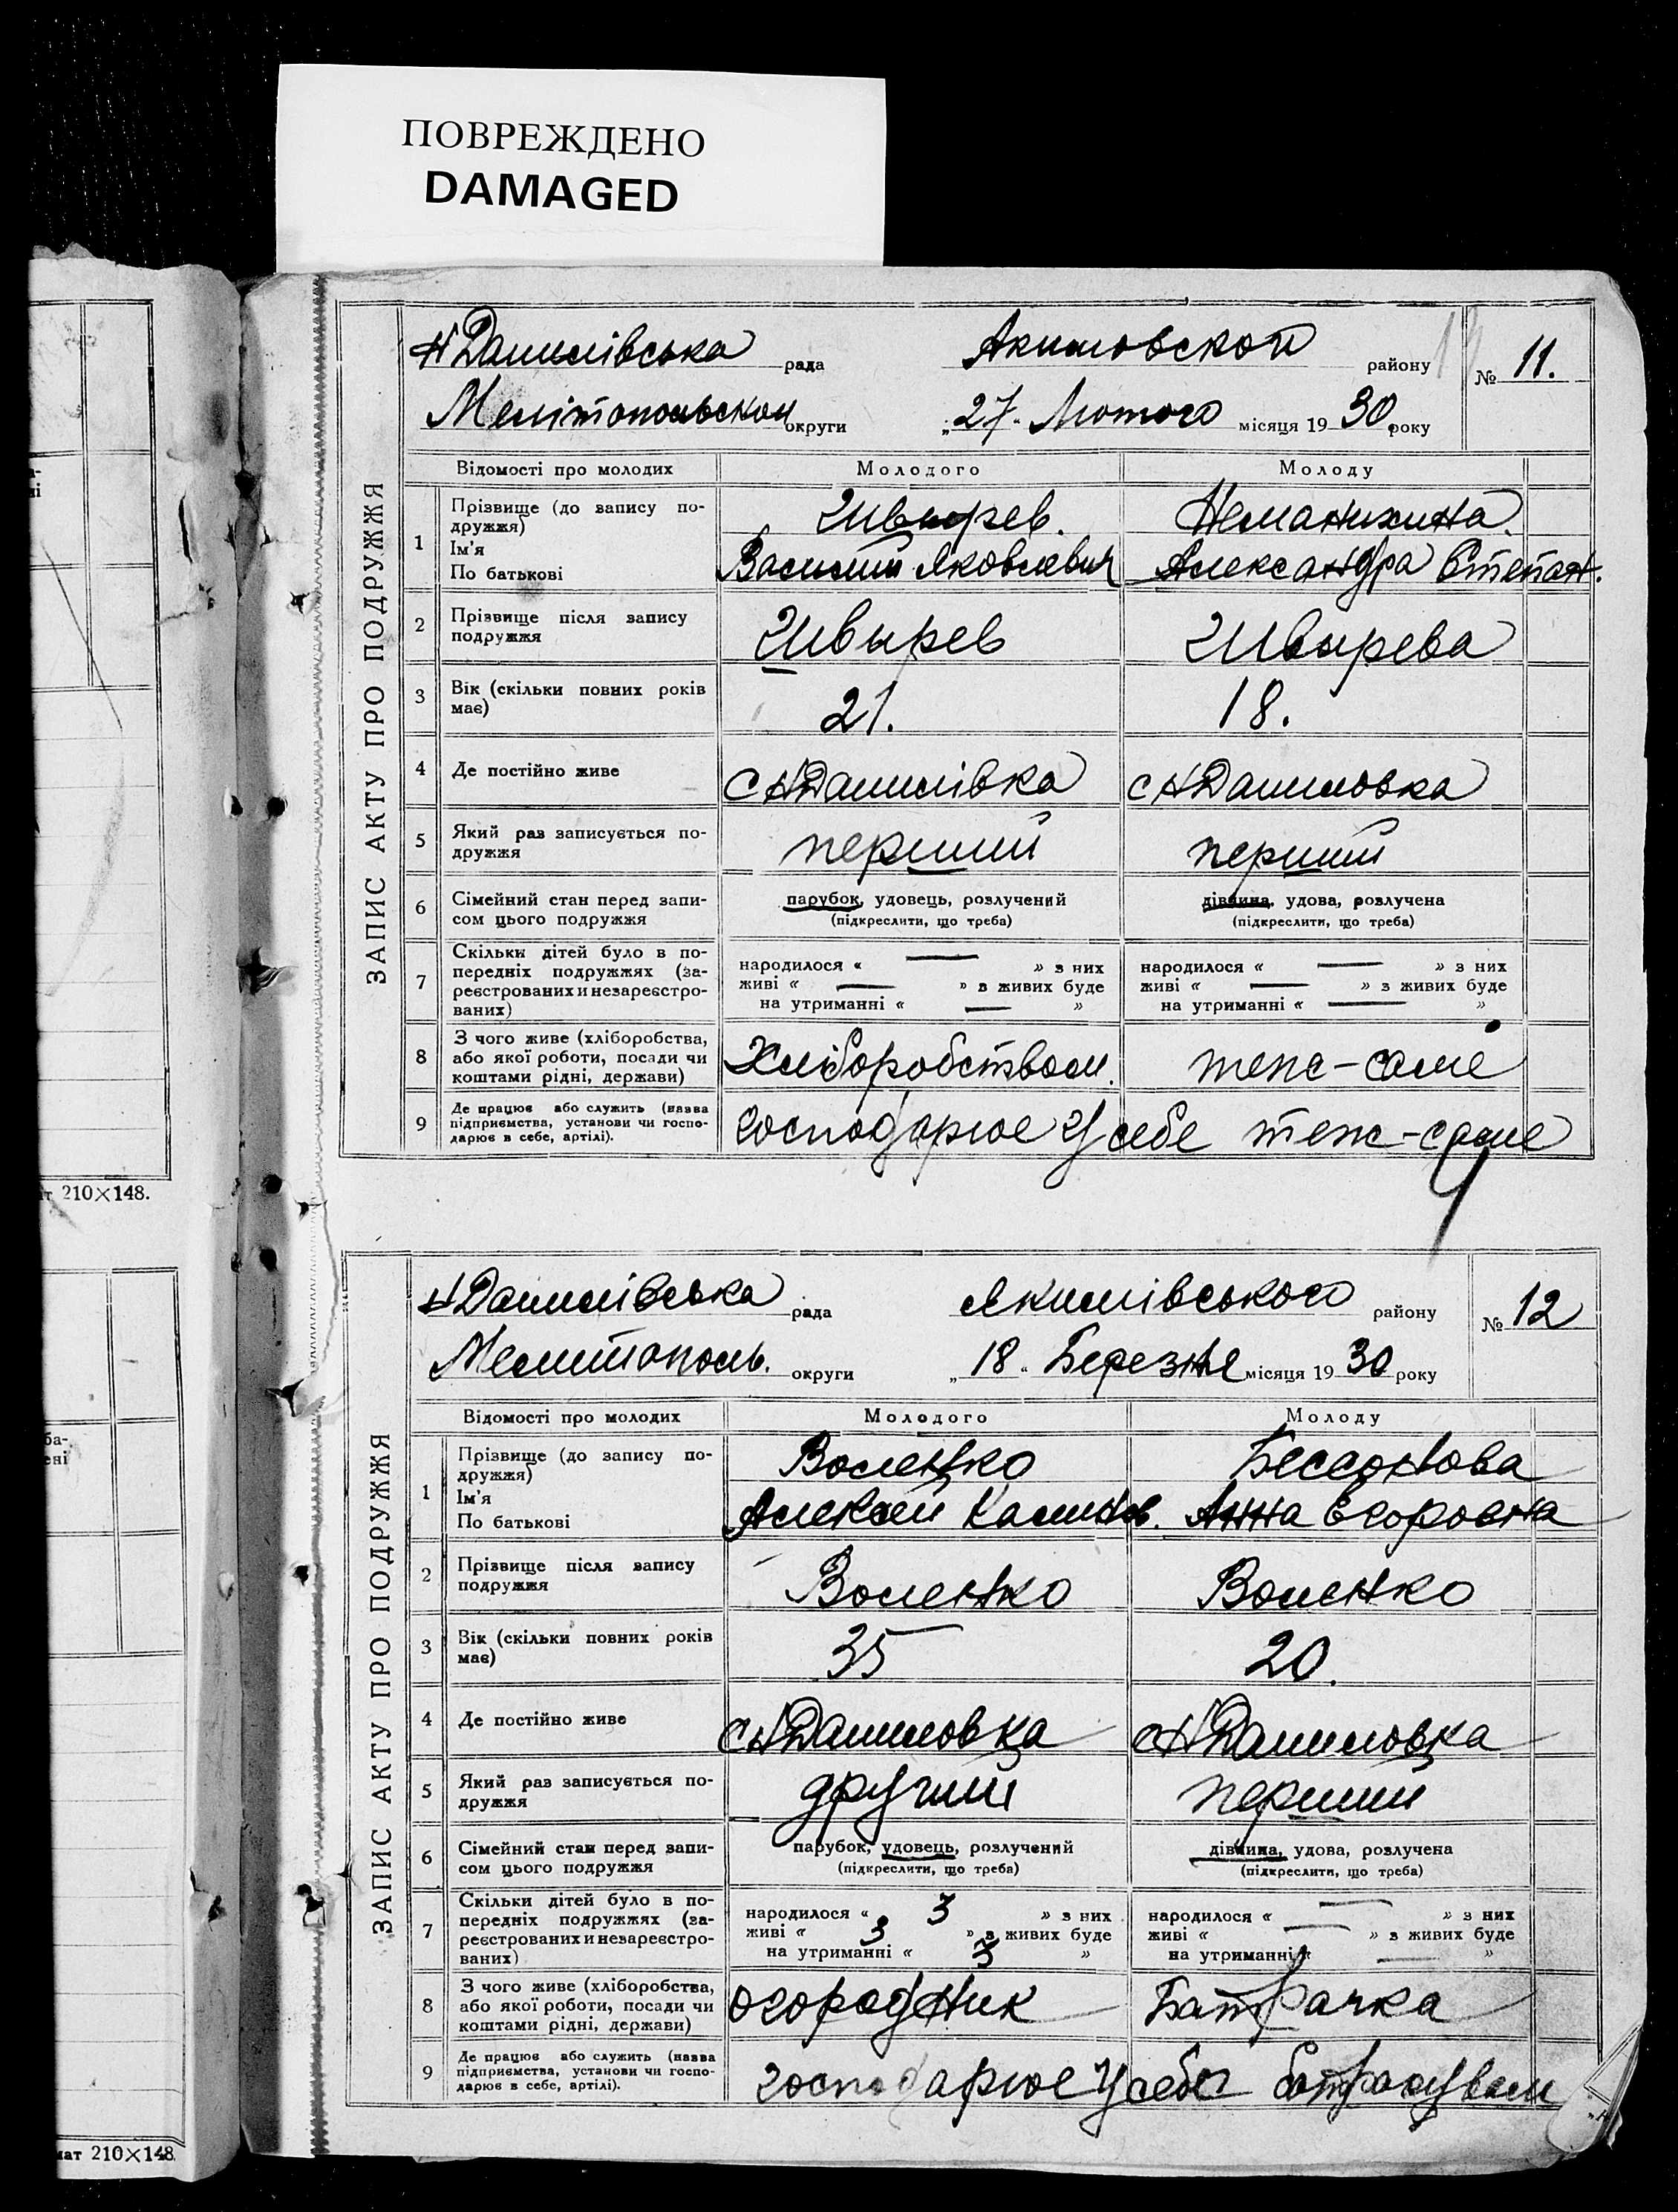 ПОВРЕЖДЕНО
DAMAGED
Н Данилівська рада Акимовской району № 11.
Мелітопольской округи „27“ Лютого місяця 1930 року
ЗАПИС АКТУ ПРО ПОДРУЖЖЯ
Відомості про молодих Молодого Молоду
1 Прізвище (до запису по-
дружжя) Швырев. Неманихина
Ім'я
По батькові Василий Яковлевич Александра Степан.
2 Прізвище після запису
подружжя Швырев Швырева
3 Вік (скільки повних років
має) 21. 18.
4 Де постійно живе с Н Данилівка с Н Даниловка
5 Який раз записується по-
дружжя перший перший
6 Сімейний стан перед запи-
сом цього подружжя парубок, удовець, розлучений дівчина, удова, розлучена
(підкреслити, що треба) (підкреслити, що треба)
7 Скільки дітей було в по-
передніх подружжях (за-
реєстрованих и незареєстро-
ваних)
народилося « — » з них народилося « — » з них
живі « — » з живих буде живі « — » з живих буде
на утриманні « — » на утриманні « — »
8 З чого живе (хліборобства,
або якої роботи, посади чи
коштами рідні, держави) Хліборобством. теж-саме
9 Де працює або служить (назва
підприємства, установи чи госпо-
дарює в себе, артілі). господарює У себе теж-саме
т 210×148.
Н Данилівська рада Якимівського району № 12
Мелитополь. округи „18“ Березня місяця 1930 року
ЗАПИС АКТУ ПРО ПОДРУЖЖЯ
Відомості про молодих Молодого Молоду
1 Прізвище (до запису по-
дружжя) Воленко Бессонова
Ім'я
По батькові Алексей Калинов. Анна Егоровна
2 Прізвище після запису
подружжя Воленко Воленко
3 Вік (скільки повних років
має) 35 20.
4 Де постійно живе с Н Даниловка с Н Даниловка
5 Який раз записується по-
дружжя другий перший
6 Сімейний стан перед запи-
сом цього подружжя парубок, удовець, розлучений дівчина, удова, розлучена
(підкреслити, що треба) (підкреслити, що треба)
7 Скільки дітей було в по-
передніх подружжях (за-
реєстрованих и незареєстро-
ваних)
народилося « 3 » з них народилося « — » з них
живі « 3 » з живих буде живі « — » з живих буде
на утриманні « 3 » на утриманні « — »
8 З чого живе (хліборобства,
або якої роботи, посади чи
коштами рідні, держави) огородник Батрачка
9 Де працює або служить (назва
підприємства, установи чи госпо-
дарює в себе, артілі). господарює У себе
мат 210×148.